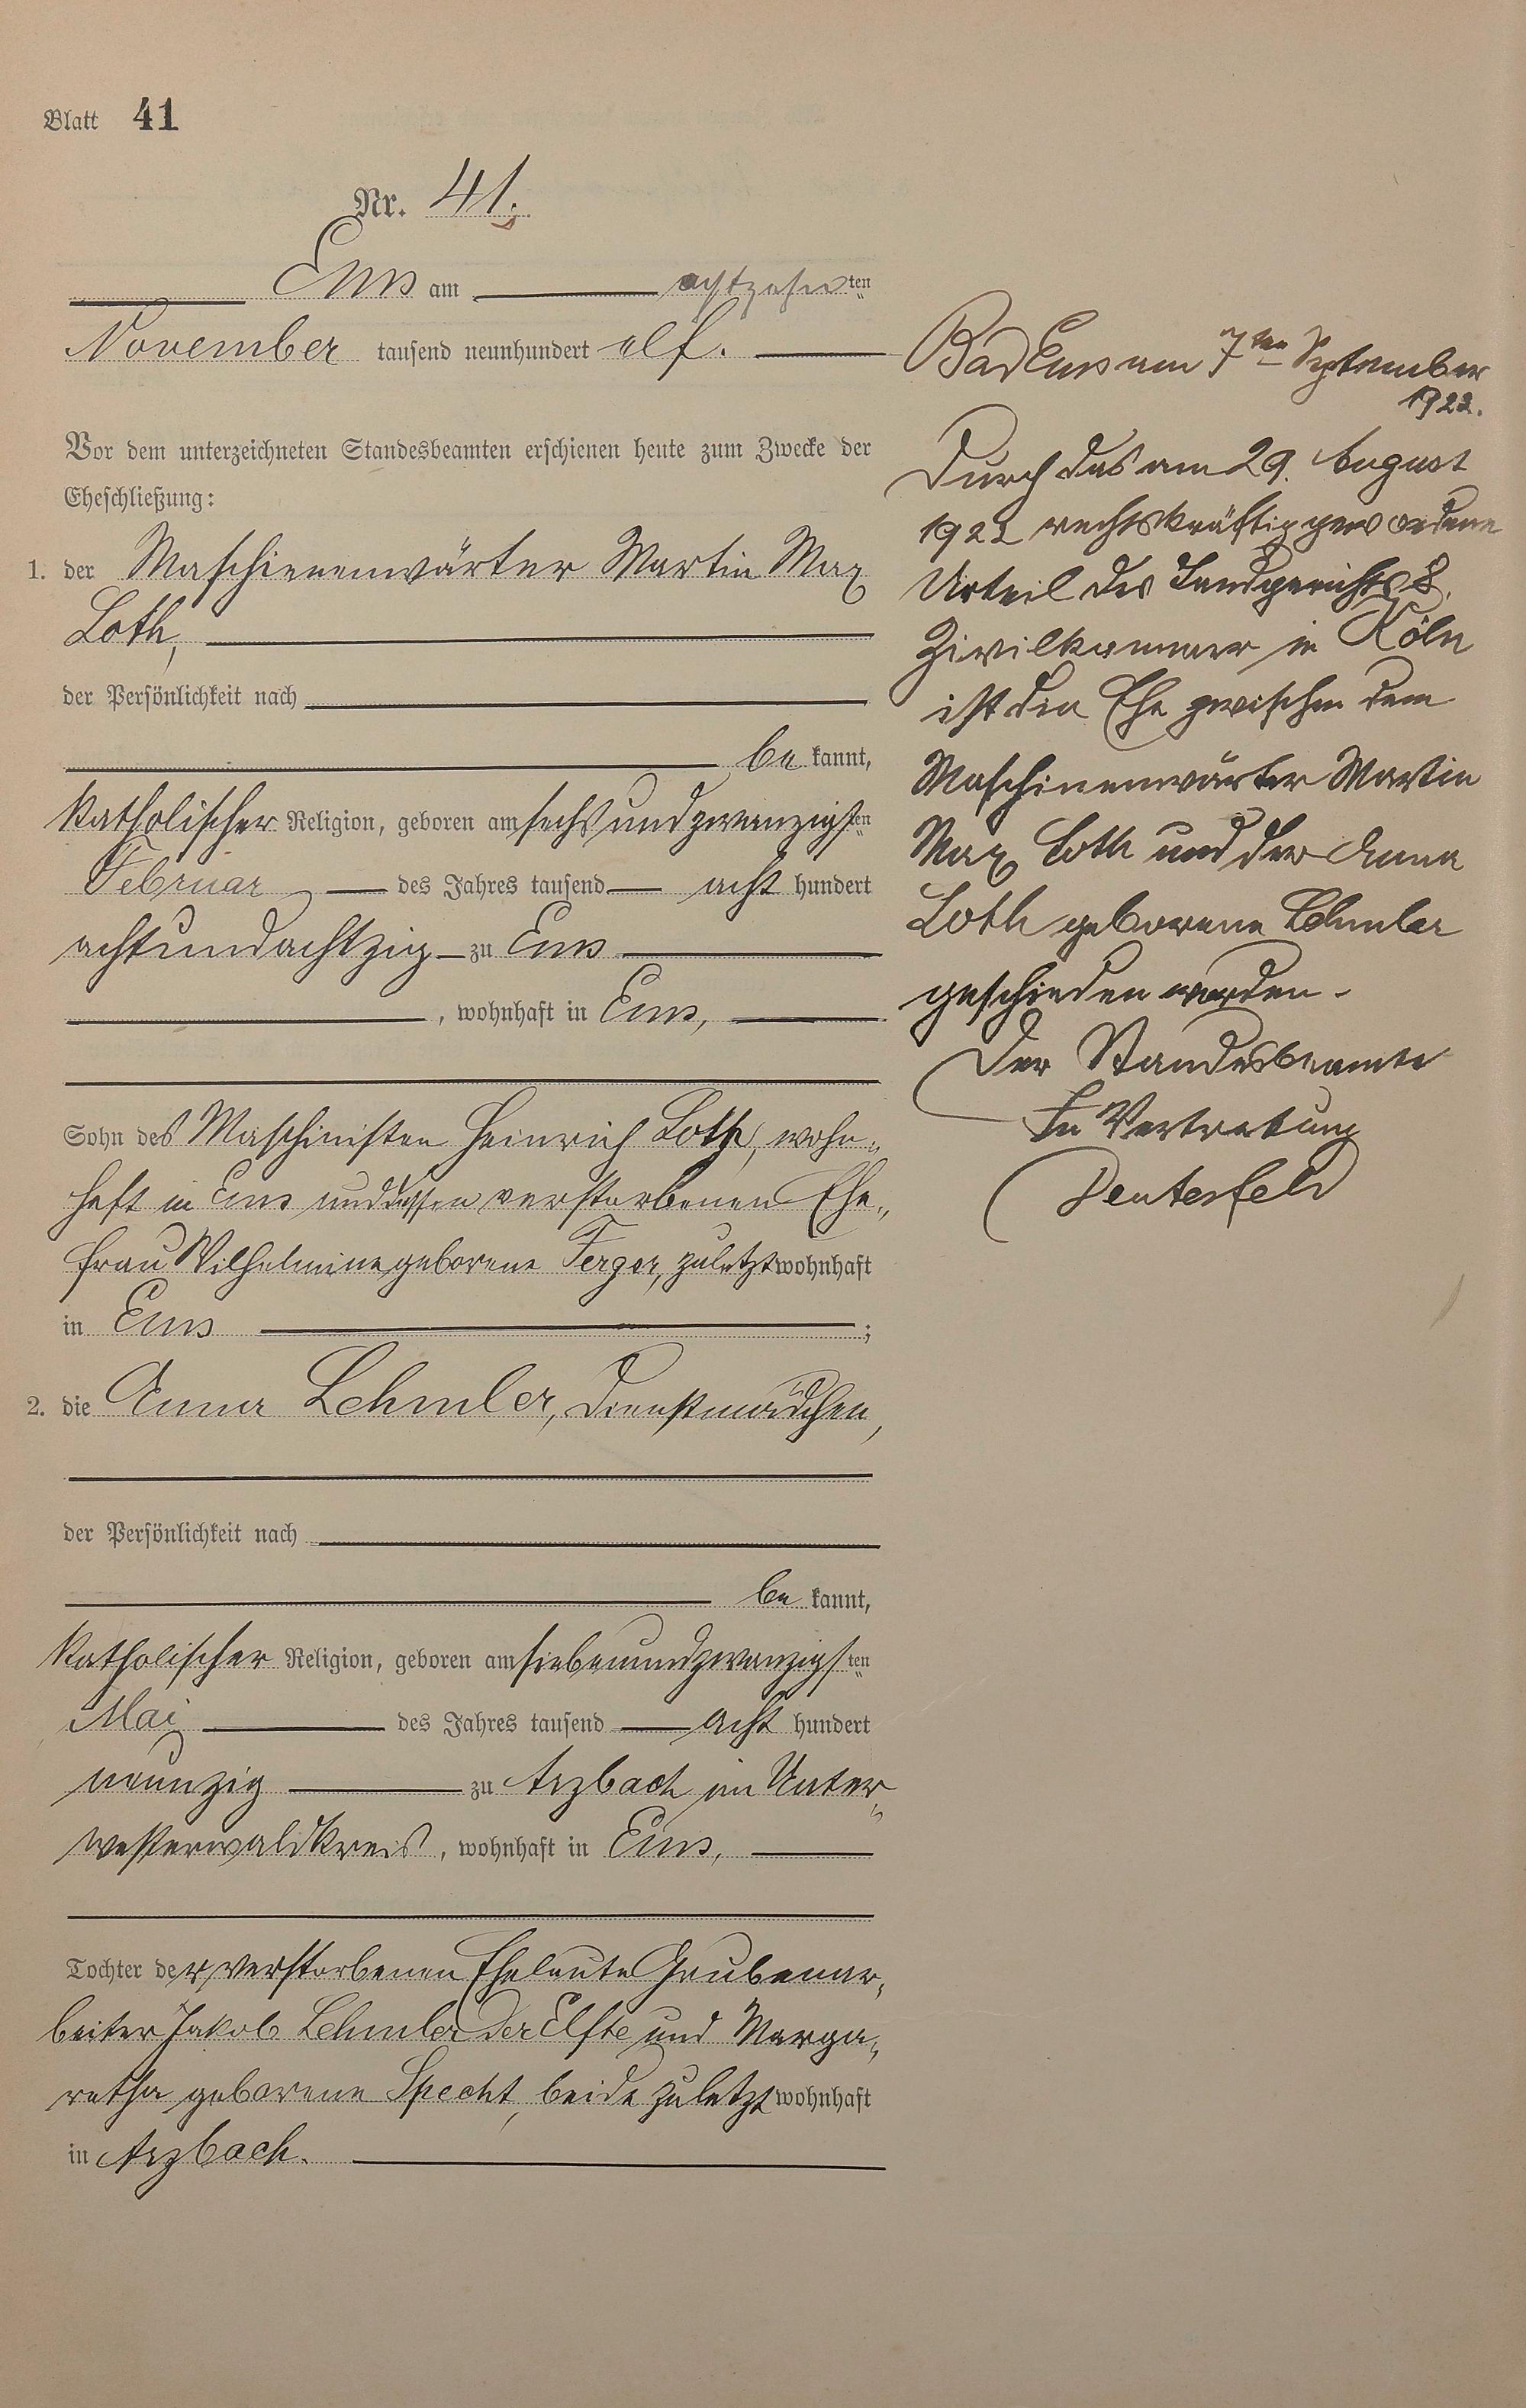 Blatt 41
Nr. 41.
Ems am achtzehnten
November tausend neunhundert elf.
Vor dem unterzeichneten Standesbeamten erschienen heute zum Zwecke der
Eheschließung:
1. der Maschienenwärter Martin Max
Loth,
der Persönlichkeit nach
be kannt,
katholischer Religion, geboren am sechsundzwanzigsten
Februar des Jahres tausend acht hundert
achtundachtzig zu Ems
, wohnhaft in Ems,
Sohn des Maschinisten Heinrich Loth, wohn-
haft in Ems und dessen verstorbenen Ehe-
frau Wilhelmine geborene Ferger, zuletzt wohnhaft
in Ems ;
2. die Anna Lehmler, Dienstmädchen,
der Persönlichkeit nach
be kannt,
katholischer Religion, geboren am siebenundzwanzigsten
Mai des Jahres tausend acht hundert
neunzig zu Arzbach im Unter-
westerwaldkreis, wohnhaft in Ems,
Tochter der verstorbenen Eheleute Grubenar-
beiter Jakob Lehmler der Elfte und Marga-
retha geborene Specht, beide zuletzt wohnhaft
in Arzbach.
Bad Ems am 7ten September
1922.
Durch das am 29. August
1922 rechtskräftig gewordene
Urteil des Landgerichts 8.
Zivilkammer in Köln
ist die Ehe zwischen dem
Maschinenwärter Martin
Max Loth und der Anna
Loth geborene Lehmler
geschieden worden.
Der Standesbeamte
In Vertretung